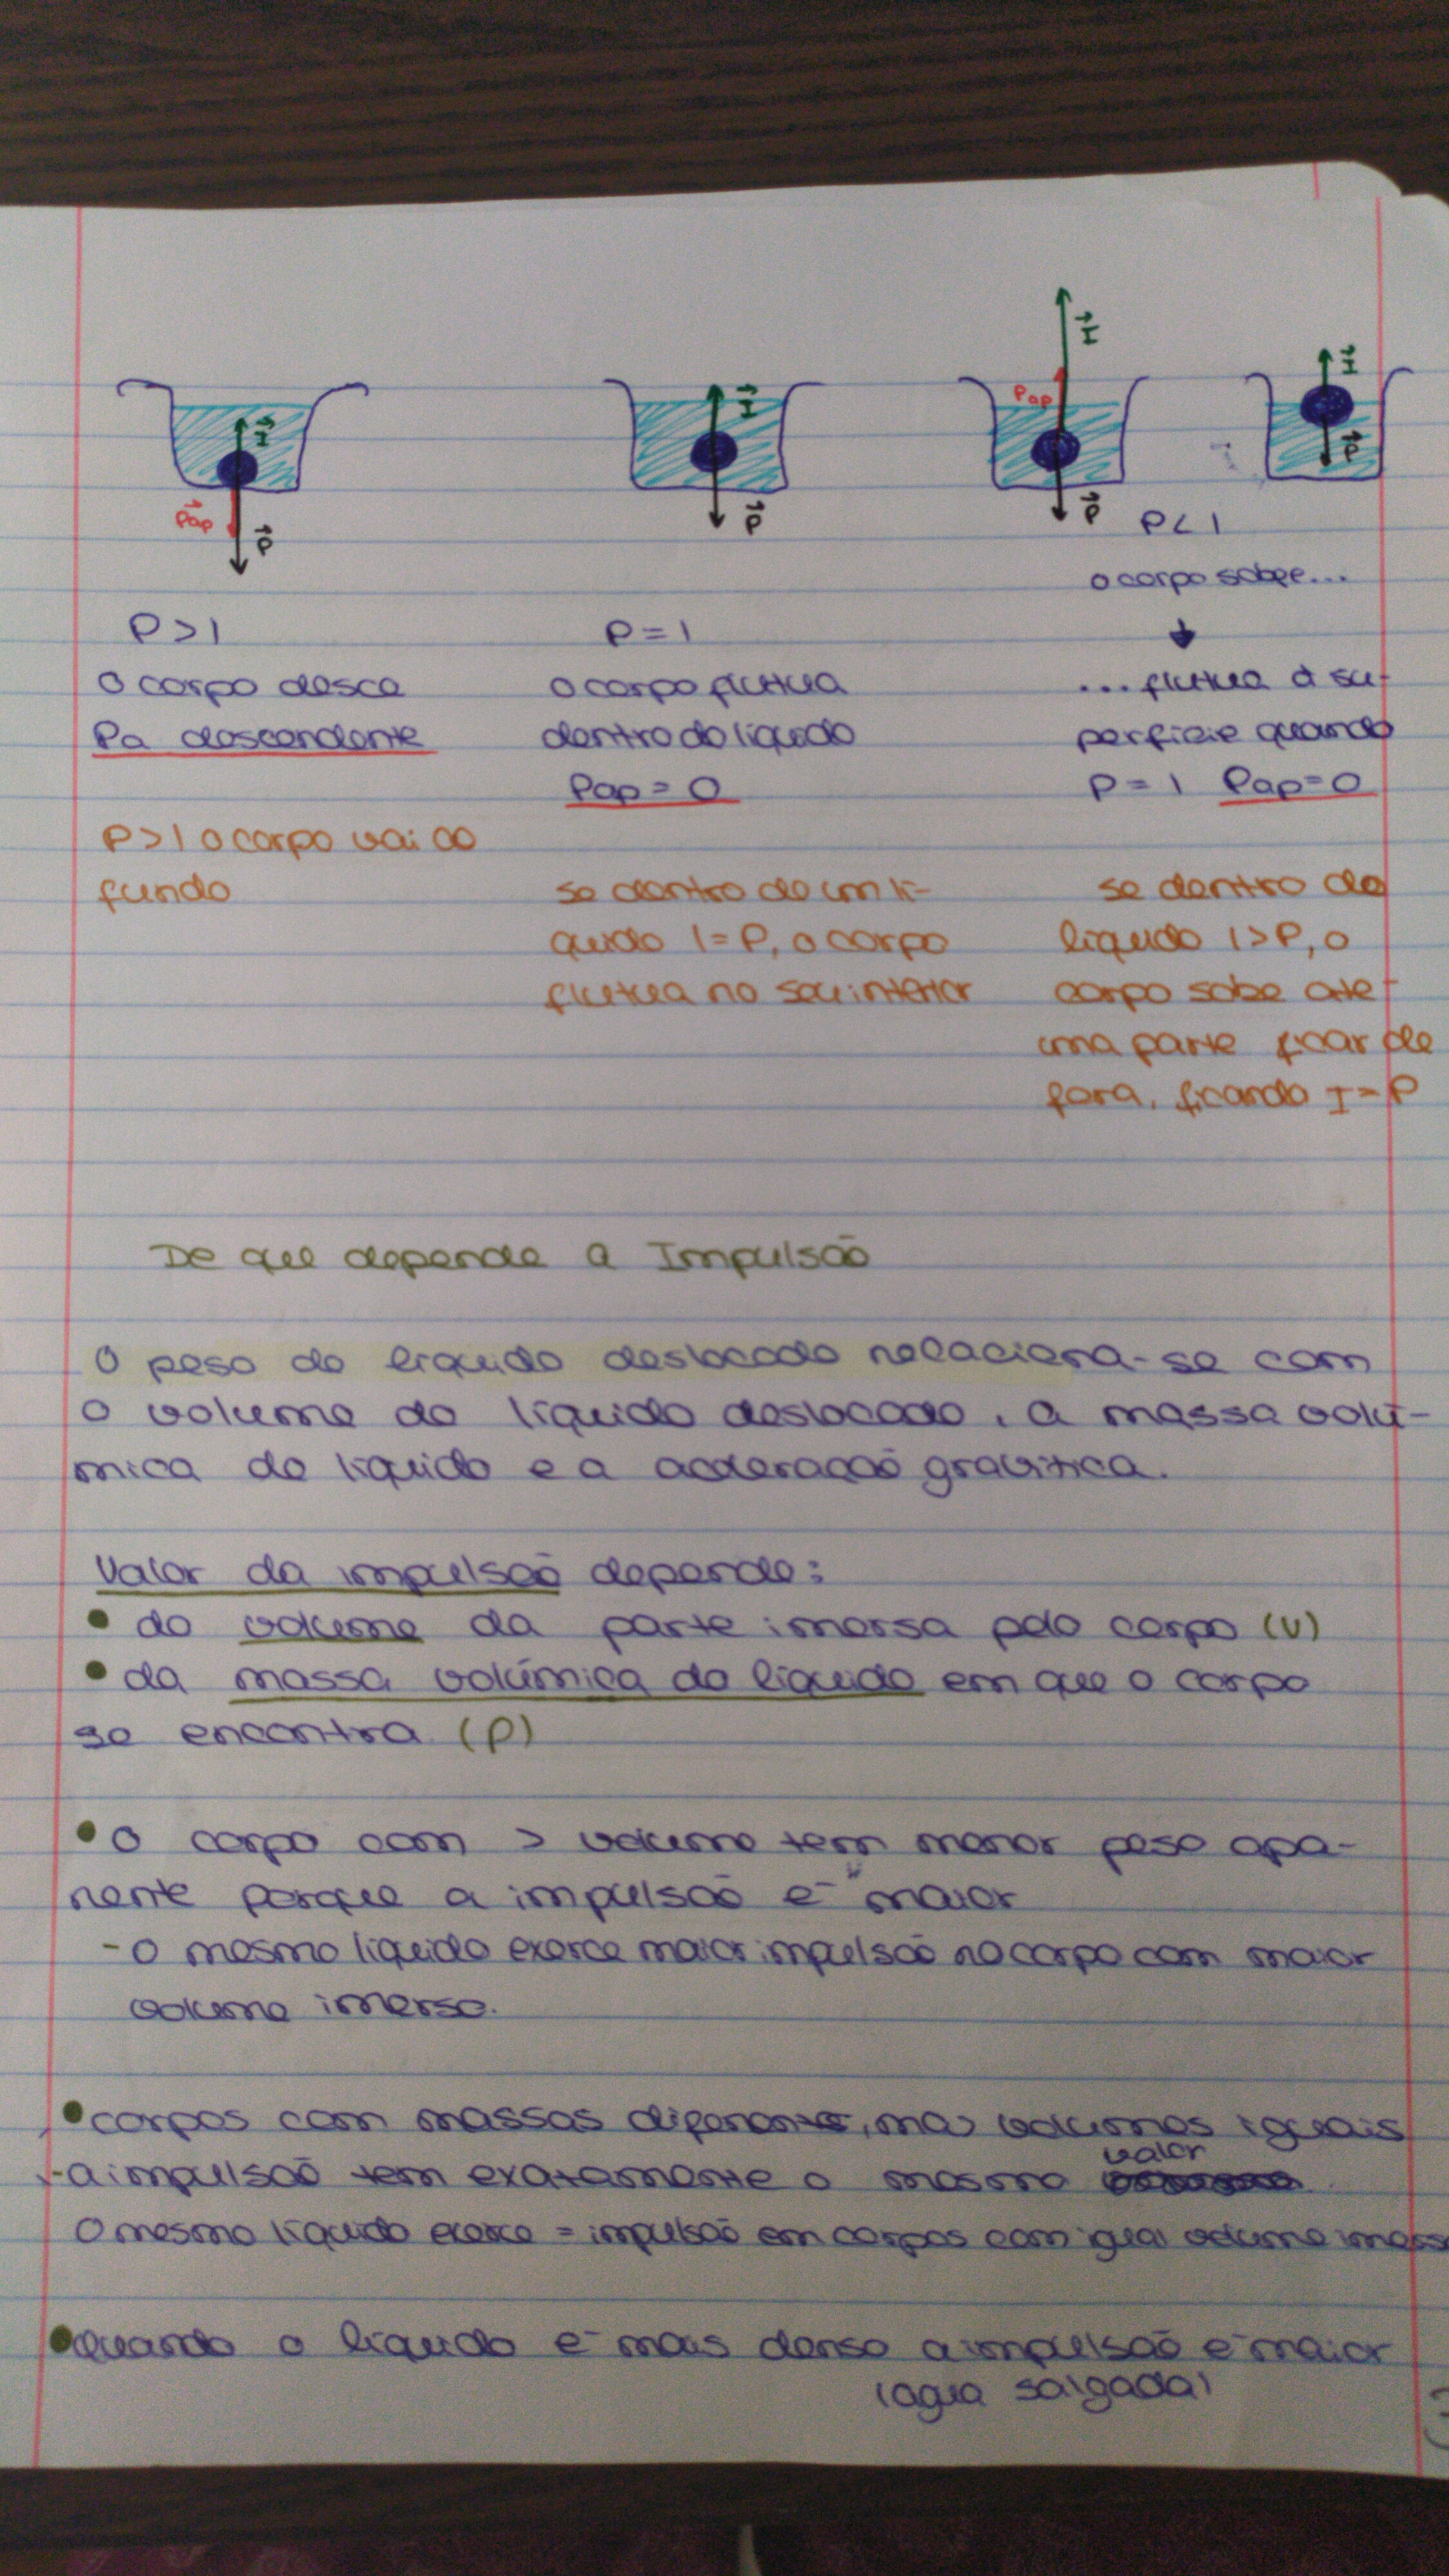 I⃗
I⃗
I⃗
I⃗
Pap
P⃗ap
P⃗
P⃗
P⃗
P⃗
P < I
o corpo sobe...
P > I
O corpo desce
Pa descendente
P > I o corpo vai ao
fundo
P = I
O corpo flutua
dentro do líquido
Pap = 0
se dentro de um lí-
quido I = P, o corpo
flutua no seu interior
... flutua à su-
perficie quando
P = I Pap = 0
se dentro do
liquido I > P, o
corpo sobe até
uma parte ficar de
fora, ficando I = P
De que depende a Impulsão
O peso do líquido deslocado relaciona-se com
o volume do líquido deslocado, a massa volú-
mica do líquido e a aceleração gravítica.
Valor da impulsão depende:
• do volume da parte imersa pelo corpo (V)
• da massa volúmica do líquido em que o corpo
se encontra (ρ)
• O corpo com > volume tem menor peso apa-
rente porque a impulsão é maior
- o mesmo líquido exerce maior impulsão no corpo com maior
volume imerso.
• corpos com massas diferentes, mas volumes iguais
- a impulsão tem exatamente o mesmo valor
O mesmo líquido exerce = impulsão em corpos com igual volume imers
• quando o líquido é mais denso a impulsão é maior
(agua salgada)